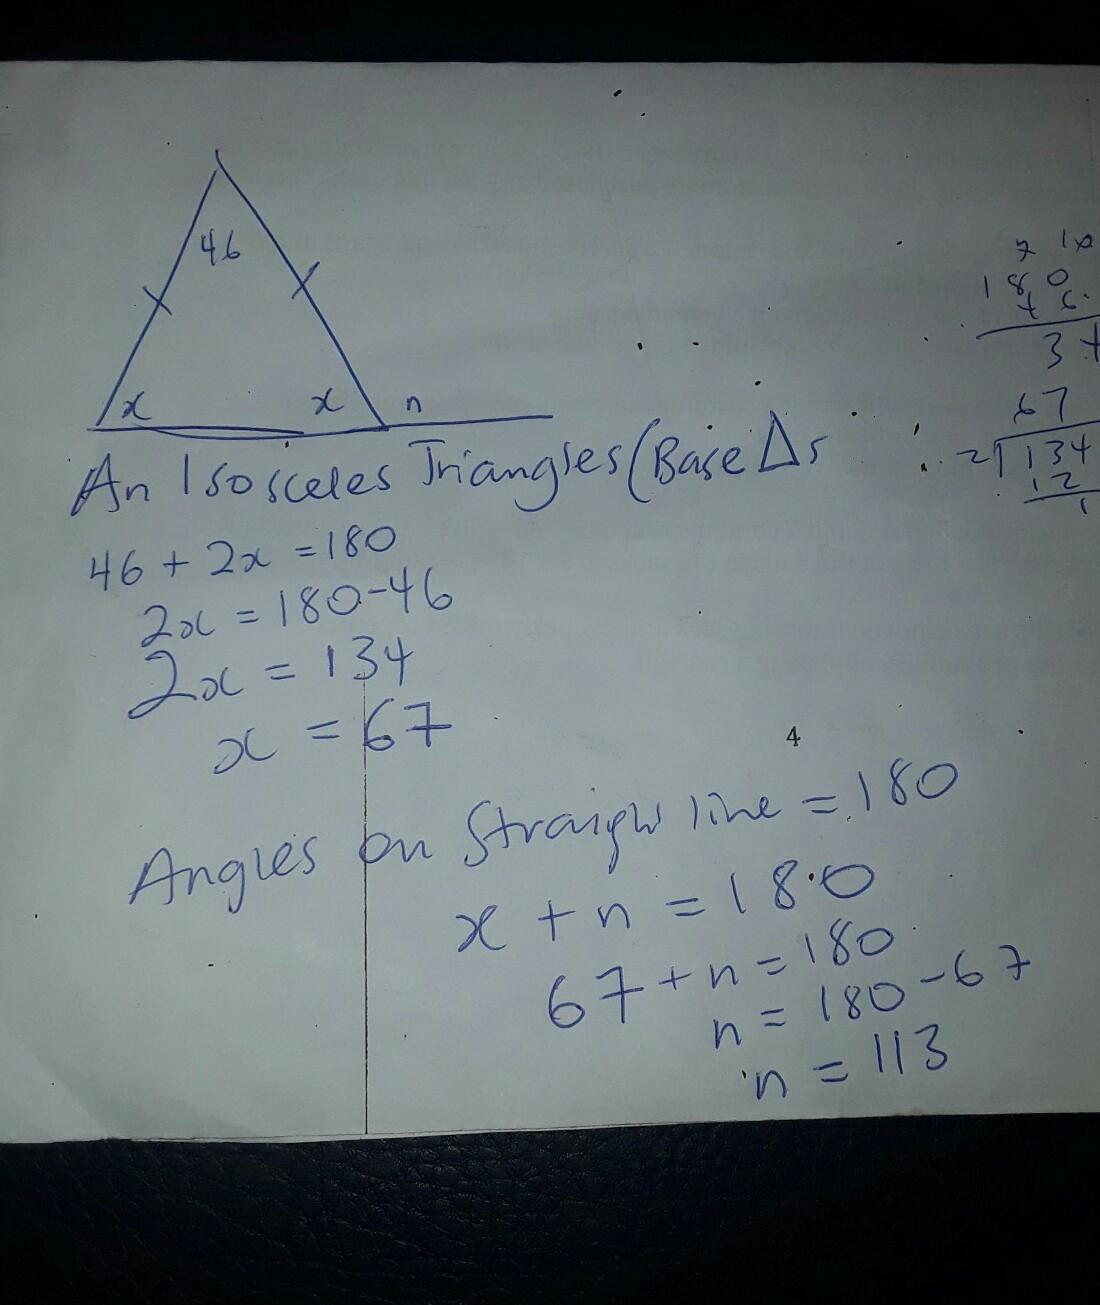 46
x x n
An Isosceles Triangles (Base Δs
46 + 2x = 180
2x = 180-46
2x = 134
x = 67
4
Angles on Straigh line = 180
x + n = 180
67 + n = 180
n = 180 - 67
n = 113
7 10
180
3
67
2 134
12
1